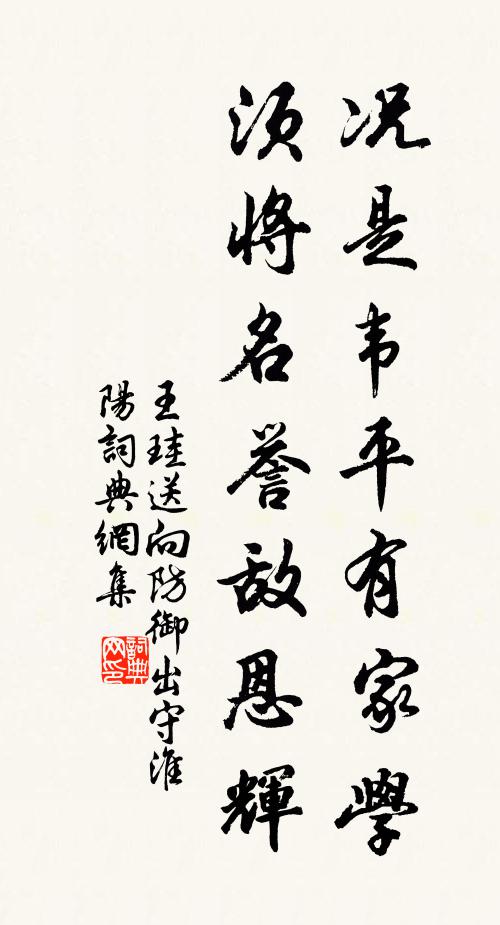 况是韦平有家學
須將名誉敌恩輝
王珪送向防御出守淮
陽詞典網集
詞典網印